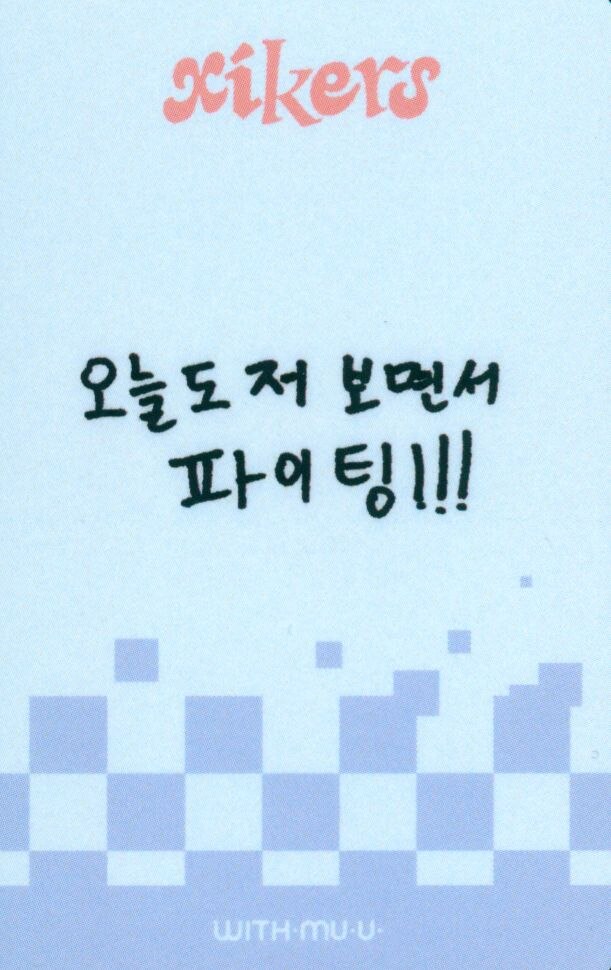 xikers
오늘도 저 보면서
파이팅!!!
WITH·MU·U·